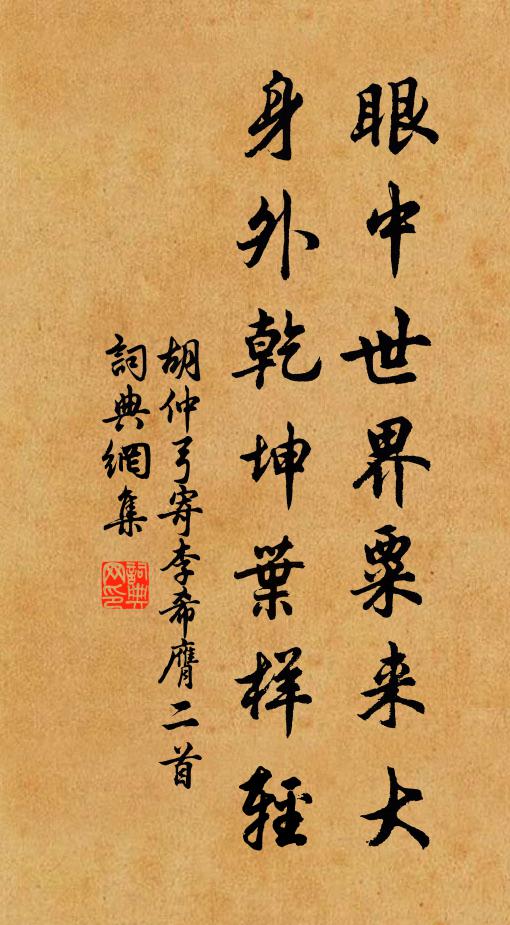 眼中世界粟来大
身外乾坤葉样輕
胡仲弓寄李希膺二首
詞典網集
詞典網印